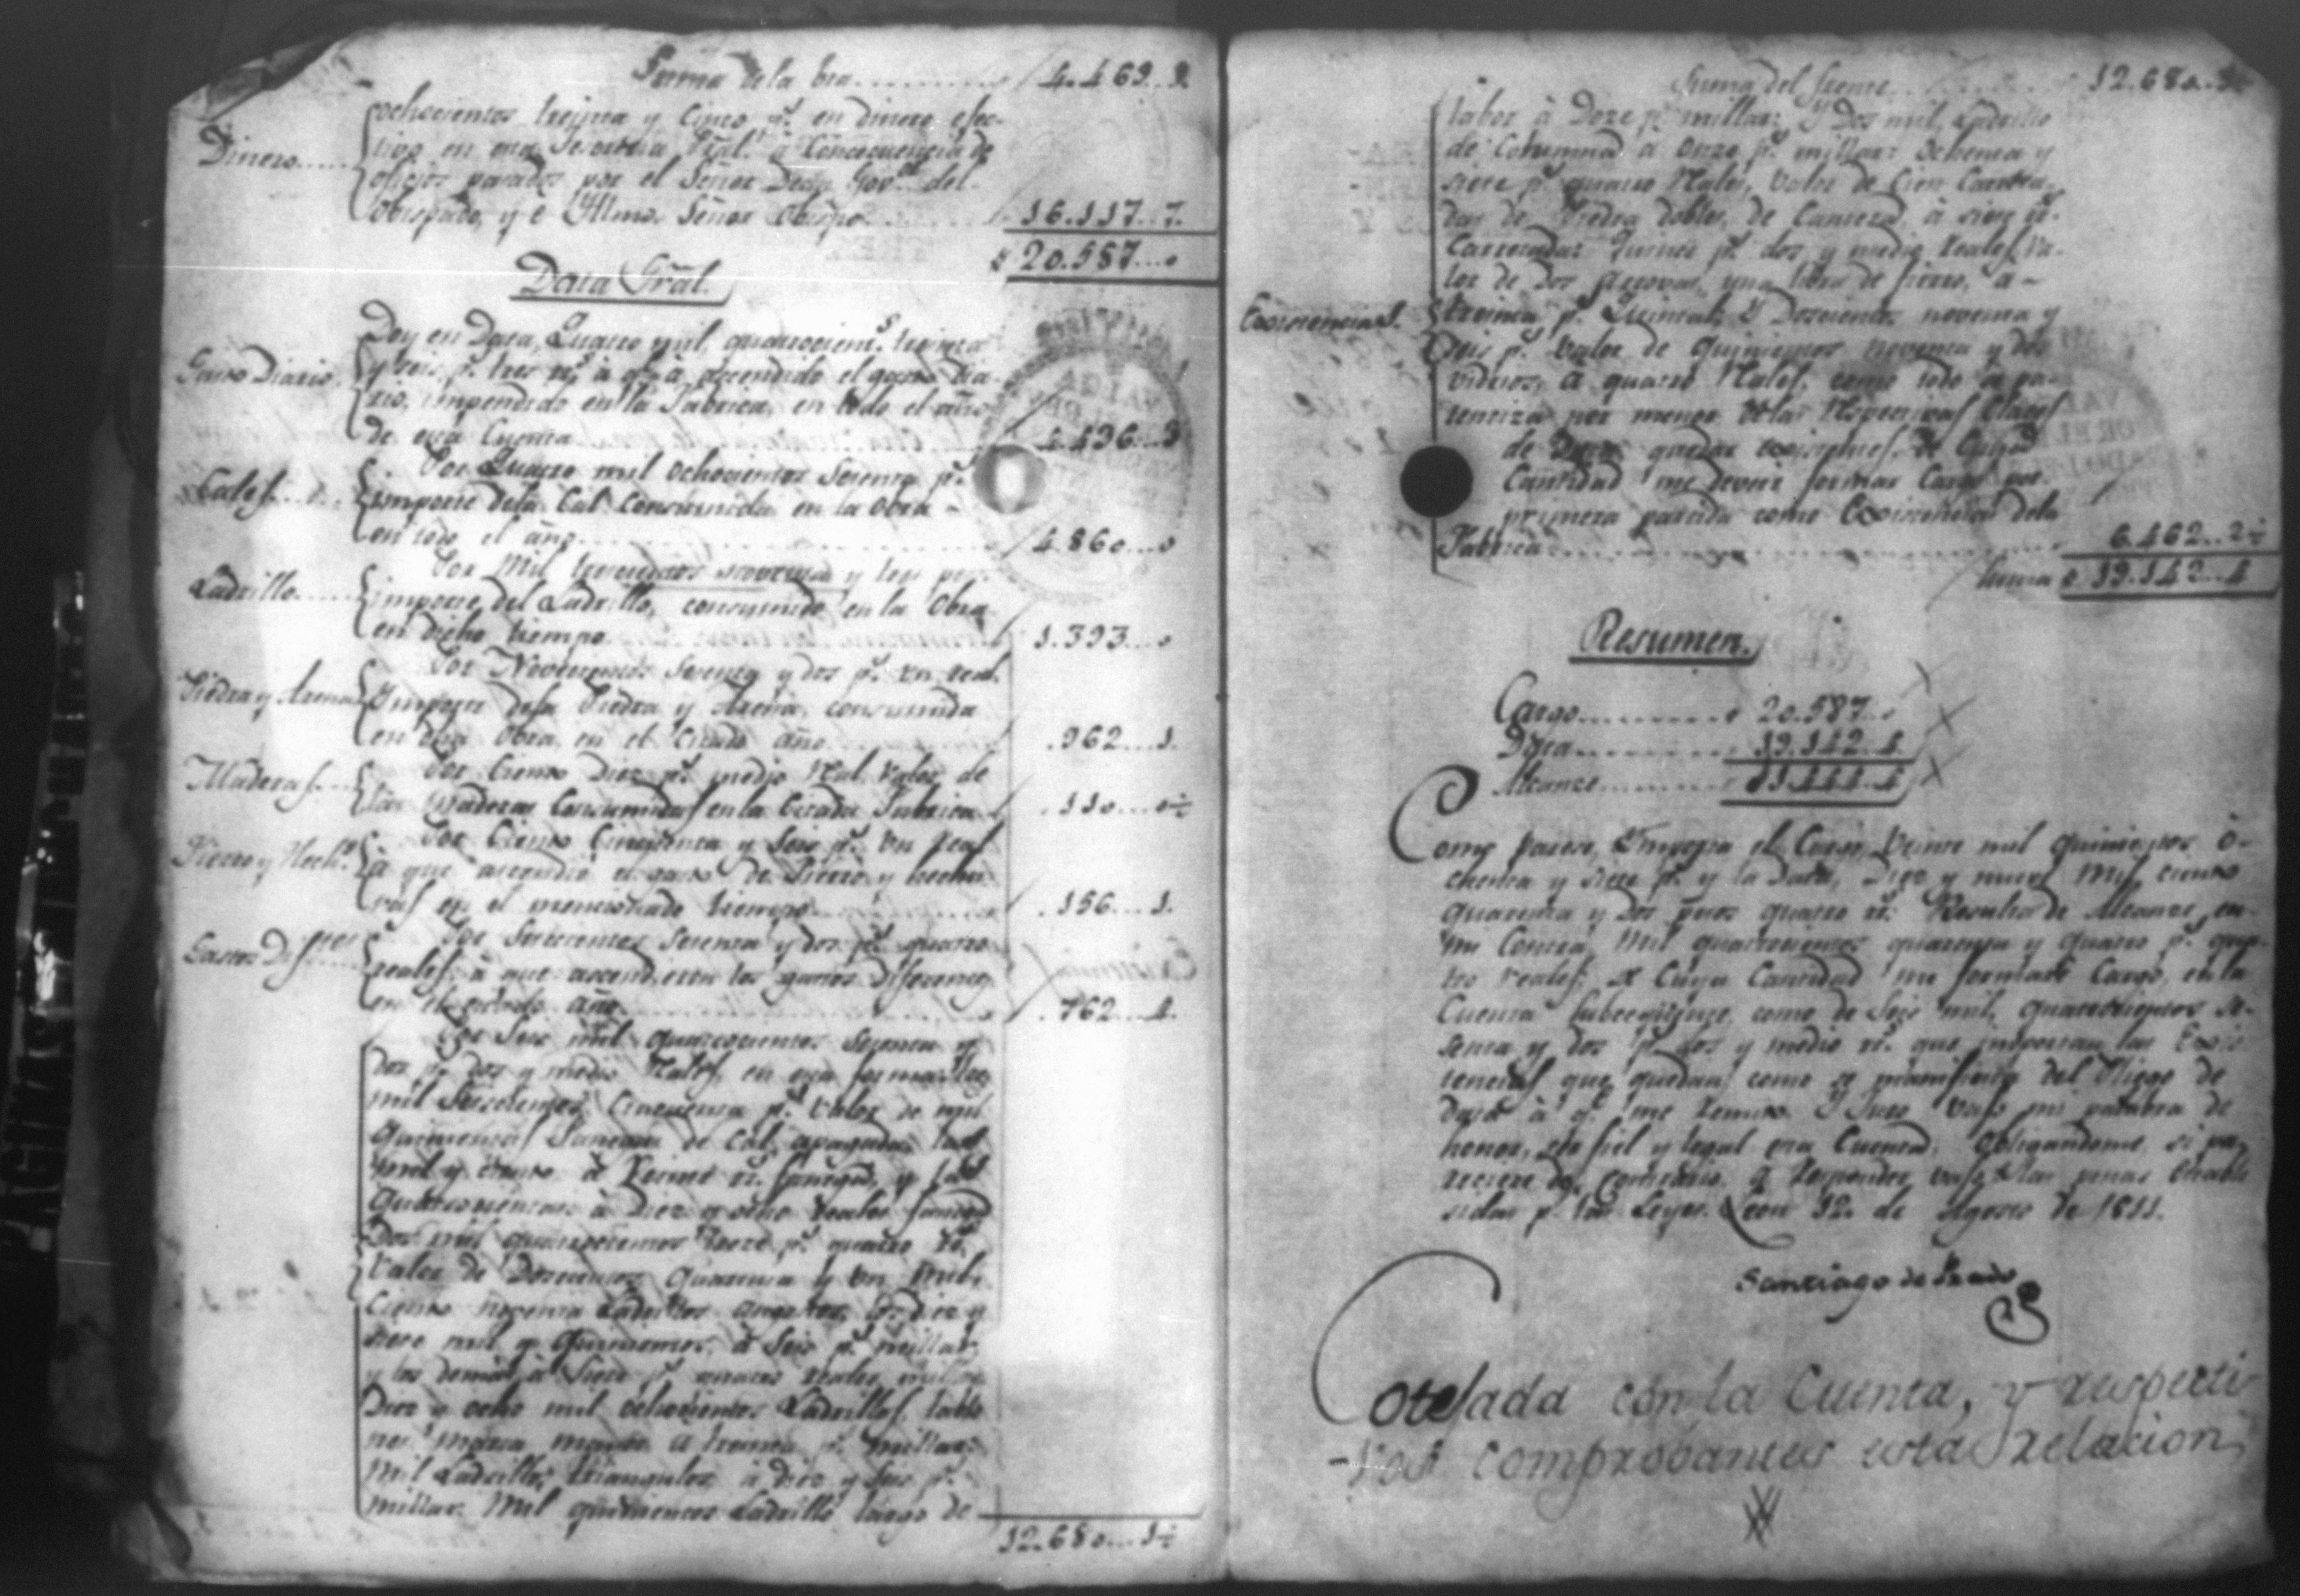 Suma de la bta........ 4.469..1
Dinero..... ochocientos treinta y cinco ps. en dinero efec-
tivo en esta Tesoreria Gral. à Concecuencia de
oficios pasados por el Señor Dean Govor. del
Obispado, y el Yllmo. Señor Obispo........ 16.117..7.
$ 20.587...0
Data Gral.
Doy en Data, Quatro mil, quatrocients. treinta
Gasto Diario. y seis ps. tres rs. à q. à ascendido el gasto Dia-
rio, impendido en la Fabrica, en todo el año
de esta Cuenta 4.436...3
Por Quatro mil ochocientos sesenta ps.
Cales...... importe de la Cal consumida en la Obra -
en todo el año........ 4.860...0
Por Mil trescientos noventa y tres pesos
Ladrillo..... importe del Ladrillo, consumido en la Obra
en dicho tiempo........ 1.393...0
Por Novecientos sesenta y dos ps. un real
Piedra y Arena Ymporte de la Piedra y Arena, consumida
en dha Obra en el citado año........ .962...1.
Maderas.... Por Ciento Diez ps. medio Ral. Valor de
las Maderas Consumidas en la Citada Fabrica .110...0½
Por Ciento Cinquenta y Seis ps. un real
Fierro y Hechs. à que ascendió el gasto de Fierro y hechu-
ras en el mencionado tiempo........ .156...1.
Gastos Difrtes Por Setecientos sesenta y dos ps. quatro
reales, à que ascendieron los gastos diferentes
en el citado año........ .762...4.
Por Seis mil quatrocientos sesenta y
dos ps. dos y medio Rales, en esta forma: Tres
mil Setecientos, cincuenta ps. Valor de mil
Quinientas fanegas de Cal, apagada, las
mil y ciento à Veinte rs. fanega, y las
Quatrocientas à Diez y ocho reales fanega
Dos mil quatrocientos Treze ps. quatro rs.
Valor de Doscientos Quarenta y un mil,
ciento noventa Ladrillos angostos, los diez y
siete mil y Quinientos, à Seis ps. millar,
y los demas à Siete ps. quatro reales, millar
Diez y ocho mil ochocientos Ladrillos, tabla
marca mayor à treinta ps. millar:
Mil Ladrillos triangulos à diez y seis ps.
millar. Mil quinientos Ladrillo largo de
12.680....1½
Suma del frente........ 12.680..1½
labor à Doze ps. millar: Y Dos mil, Ladrillo
de Columna à onze ps. millar: Ochenta y
siete ps. quatro Rales, Valor de Cien Carreta-
das de Piedra doble, de Cantera, à siete rs.
Carretada: Quince ps. dos y medio reales, Va-
lor de dos arrovas, una libra de fierro, à -
Existencias. treinta ps. Quintal; Y Doscientos noventa y
seis ps. Valor de Quinientos noventa y dos
vidrios, à quatro Rales. como todo se pa-
tentiza por menor de las Respectivas Clases
de Data quedar existentes. De Cuya
Cantidad me deveré formar Cargo por
primera partida como Existencias de la
Fabrica........ 6.462..2½
Suma $ 19.142..4
Resumen.
Cargo......... $ 20.587..0
Data......... 19.142..4
Alcanze......... 01.444..4
Como parece, Ymporta el Cargo, Veinte mil quinientos o-
chenta y siete ps. y la Data, Diez y nueve Mil, ciento
quarenta y Dos pesos quatro rs. Resulta de Alcanze, en
mi Contra, Mil quatrocientos quarenta y quatro ps. qua-
tro reales; de Cuya Cantidad me formaré Cargo, en la
Cuenta subceqüente, como de Seis mil, quatrocientos se-
senta y dos ps. dos y medio rs. que importan las Exis-
tencias que quedan como se manifiesta del Pliego de
data à q. me remito. Y Juro bajo mi palabra de
honor, ser fiel y legal esta Cuenta, Obligandome, si pa-
reciere de lo contrario, à responder bajo de las penas estable-
sidas p. las Leyes. Leon 12. de Agosto de 1811.
Santiago de Prado
Cotejada con la Cuenta, y respecti-
-vos comprobantes esta relacion,